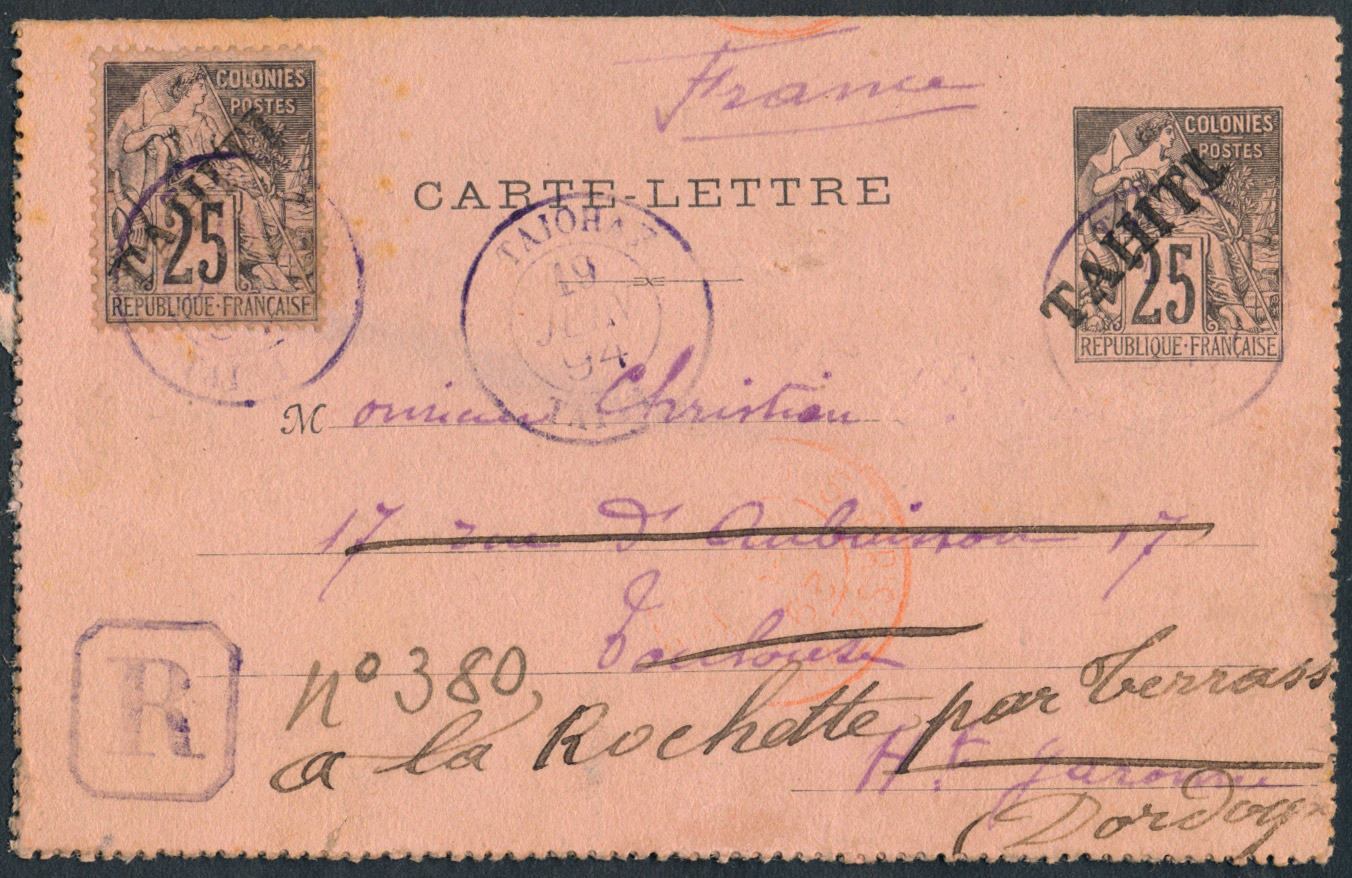 COLONIES
POSTES
TAHITI
25
REPUBLIQUE·FRANÇAISE
France
CARTE-LETTRE
COLONIES
POSTES
TAHITI
25
REPUBLIQUE·FRANÇAISE
TAIOHAE
19
JUIN
94
TAITI
Monsieur Christian
17 rue d'Aubuisson 17
Toulouse
R
n° 380
a la Rochette par Terrass
Hte Garonne
Dordog